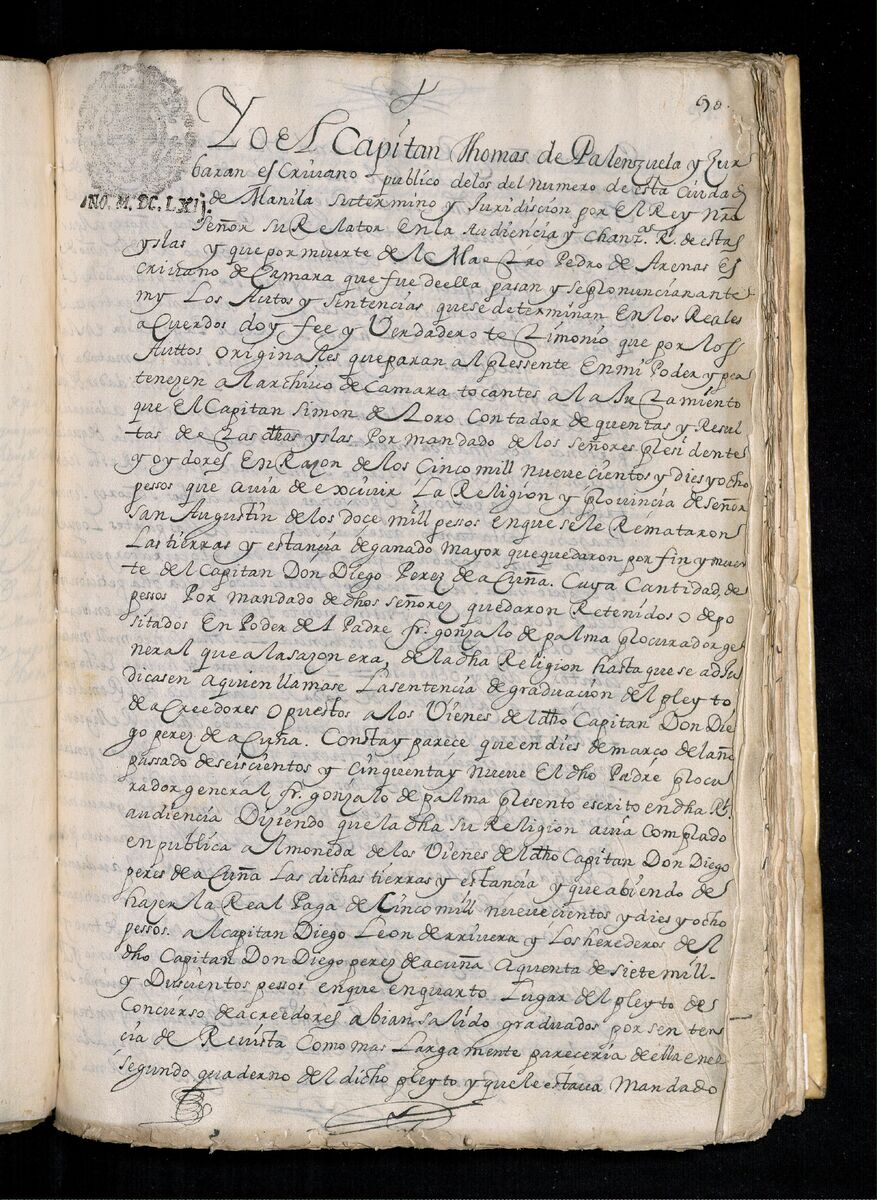 98.
Yo el Capitan Thomas de Palenzuela y Zur
baran esCriuano publico delos del numero de esta Ciudad
ANO. M. DC. LXII.
de Manila sutermino y Juridicion por El Rey Nro
señor su Relator en la Audiencia y Chanz.ª R. de estas
yslas y que por muerte del Maestro Pedro de Arenas Es
criuano de Camara que fue deella pasan y seplonuncian ante
my Los Autos y sentencias quese determinan En los Reales
aCuerdos doy fee y Verdadero testimonio que por los
Auttos originales queparan al plessente en mi Poder y per
tenezen al archiuo de Camara tocantes a la Justamiento
que El Capitan Simon de Toro Contador de quentas y Resul
tas de estas dhas yslas Por mandado de los señores plesidente
y oydores En Razon de los Cinco mill nuevecientos y dies yocho
pesos que auia de exciuir La Religion y plouincia de señor
san Augustin de los doce mill pesos enque sele Remataron
Las tierras y estancia deganado mayor que quedaron por fin y muer
te del Capitan Don Diego Perez de aCuña. Cuya Cantidad, de
pesos Por mandado de dhos señorez quedaron Retenidos o depo
sitados En Poder del Padre fr. gonzalo de palma plocurador ge
neral que a lasazon era, de la dha Religion hasta que se adJu
dicasen aquien llamase Lasentencia de graduacion del pleyto
de aCreedores opuestos alos Vienes del dho Capitan Don Die
go perez de aCuña. Consta y parece que en dies de março del año
passado de seiscientos y Cinquenta y nueve El dho Padre plocu
rador general fr. gonzalo de palma plesento escrito en dha Rl.
audiencia Diziendo que la dha su Religion auia Complado
en publica almoneda de los Vienes del dho Capitan Don Diego
peres de aCuña Las dichas tierras y estancia y que abiendo de
hazer la Real Paga de Cinco mill nuevecientos y dies yocho
pessos. al capitan Diego Leon de rrivera y Los herederos del
dho Capitan Don Diego perez de acuña a quenta de siete mill
y Duscientos pessos en que en quarto Lugar del pleyto de
Concurso de acreedores abian salido graduados por senten
cia de Revista Como mas Largamente pareceria de ella en el
segundo quaderno del dicho pleyto y quele estaua Mandado